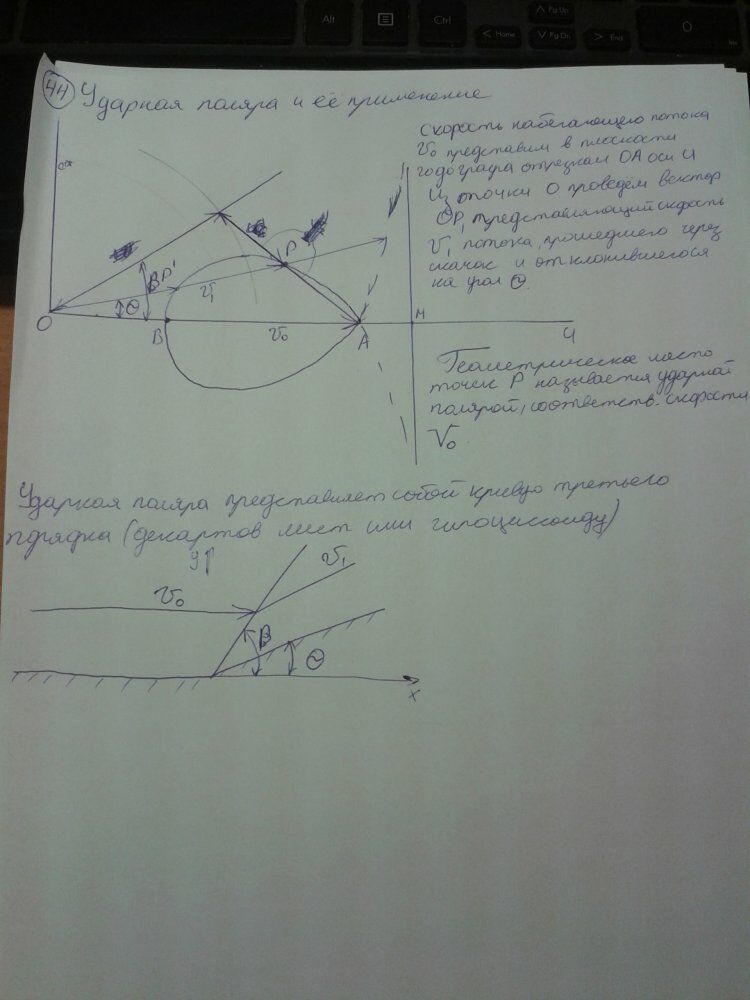 44 Ударная поляра и её применение
скорость набегающего потока
V₀ представим в плоскости
годографа отрезком OA оси U
Из точки O проведём вектор
OP, представляющий скорость
V₁ потока, прошедшего через
скачок и отклонившегося
на угол Θ.
O
Θ
β
P'
V₁
P
B
V₀
A
M
U
Геометрическое место
точек P называется ударной
полярой, соответств. скорости
V₀
Ударная поляра представляет собой кривую третьего
порядка (декартов лист или гипоциссоиду)
y
V₀
V₁
β
Θ
x
Alt
Ctrl
Home
Pg Up
Pg Dn
End
0
Ins